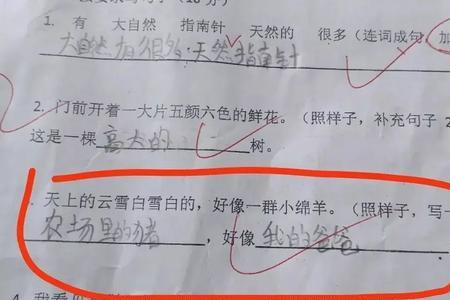 1. 有 大自然 指南针 天然的 很多（连词成句，加
大自然有很多天然指南针
2. 门前开着一大片五颜六色的鲜花。（照样子，补充句子
这是一棵高大的树。
天上的云雪白雪白的，好像一群小绵羊。（照样子，写一
农场里的猪，好像我的爸爸